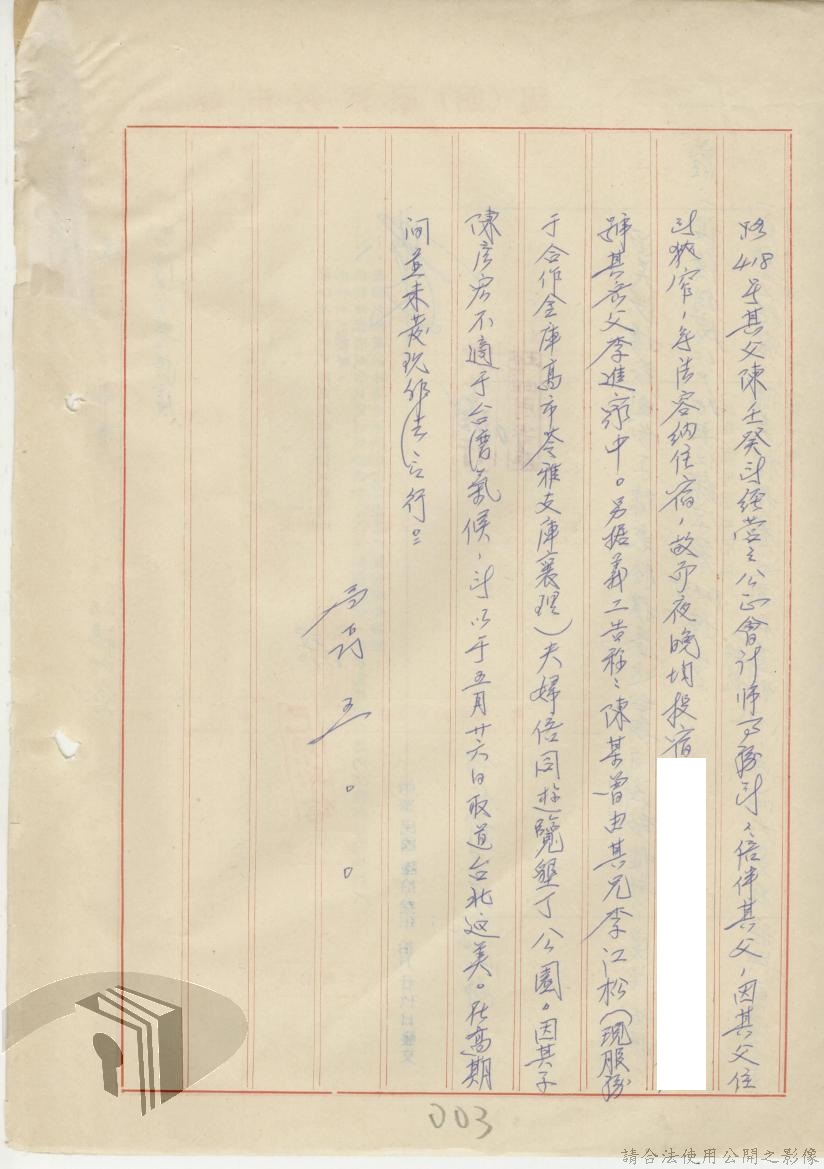 路418号其父陳壬癸所經营之公正會計師事務所，倍伴其父，因其父住
所狹窄，無法容纳住宿，故而夜晚均投宿
號其岳父李進家中。另据義工告称：陳某曾由其兄李江松（現服務
于合作金庫高市苓雅支庫襄理）夫婦倍同遊覽墾丁公園。因其子
陳彥宏不適于台灣氣候，所以于五月廿六日取道台北返美。在高期
间並未发現非法言行。
003
請合法使用公開之影像